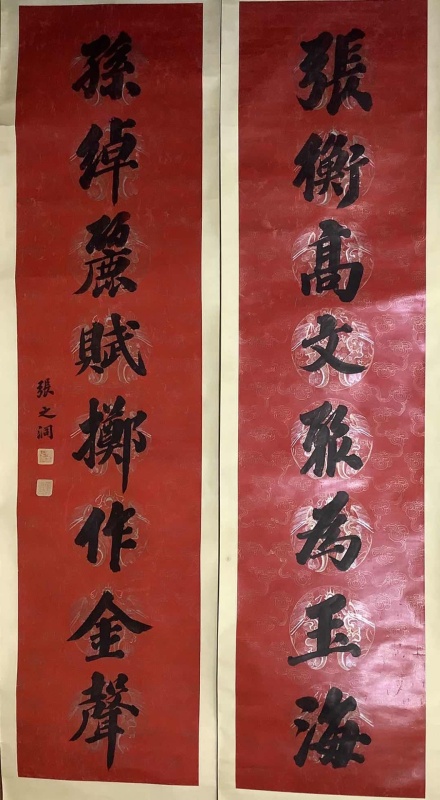 張衡髙文聚為玉海
孫綽麗賦擲作金聲
張之洞